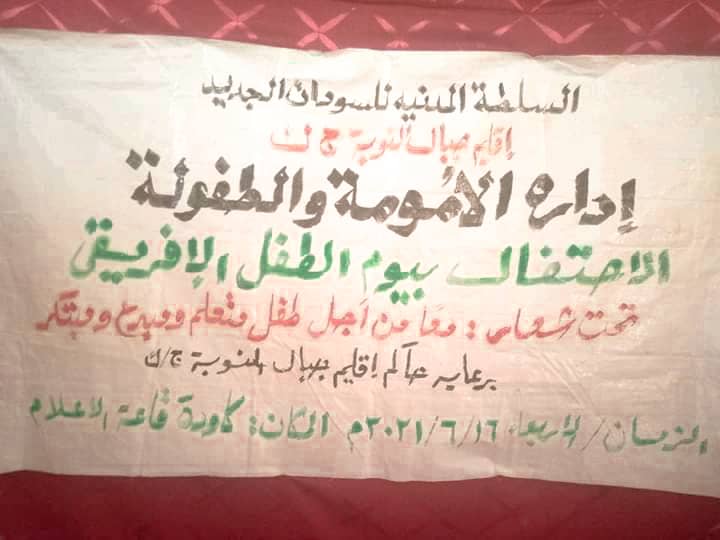 السلطة المدنيه للسودان الجديد
إقليم جبال النوبة ج ك
إداره الأمومة والطفولة
الاحتفال بيوم الطفل الإفريقي
تحت شعار : معًا من أجل طفل متعلم ومبدع ومبتكر
برعايه حاكم إقليم جبال النوبة ج/ك
الزمان / الاربعاء ٢٠٢١/٦/١٦م المكان : كاودة قاعة الاعلام